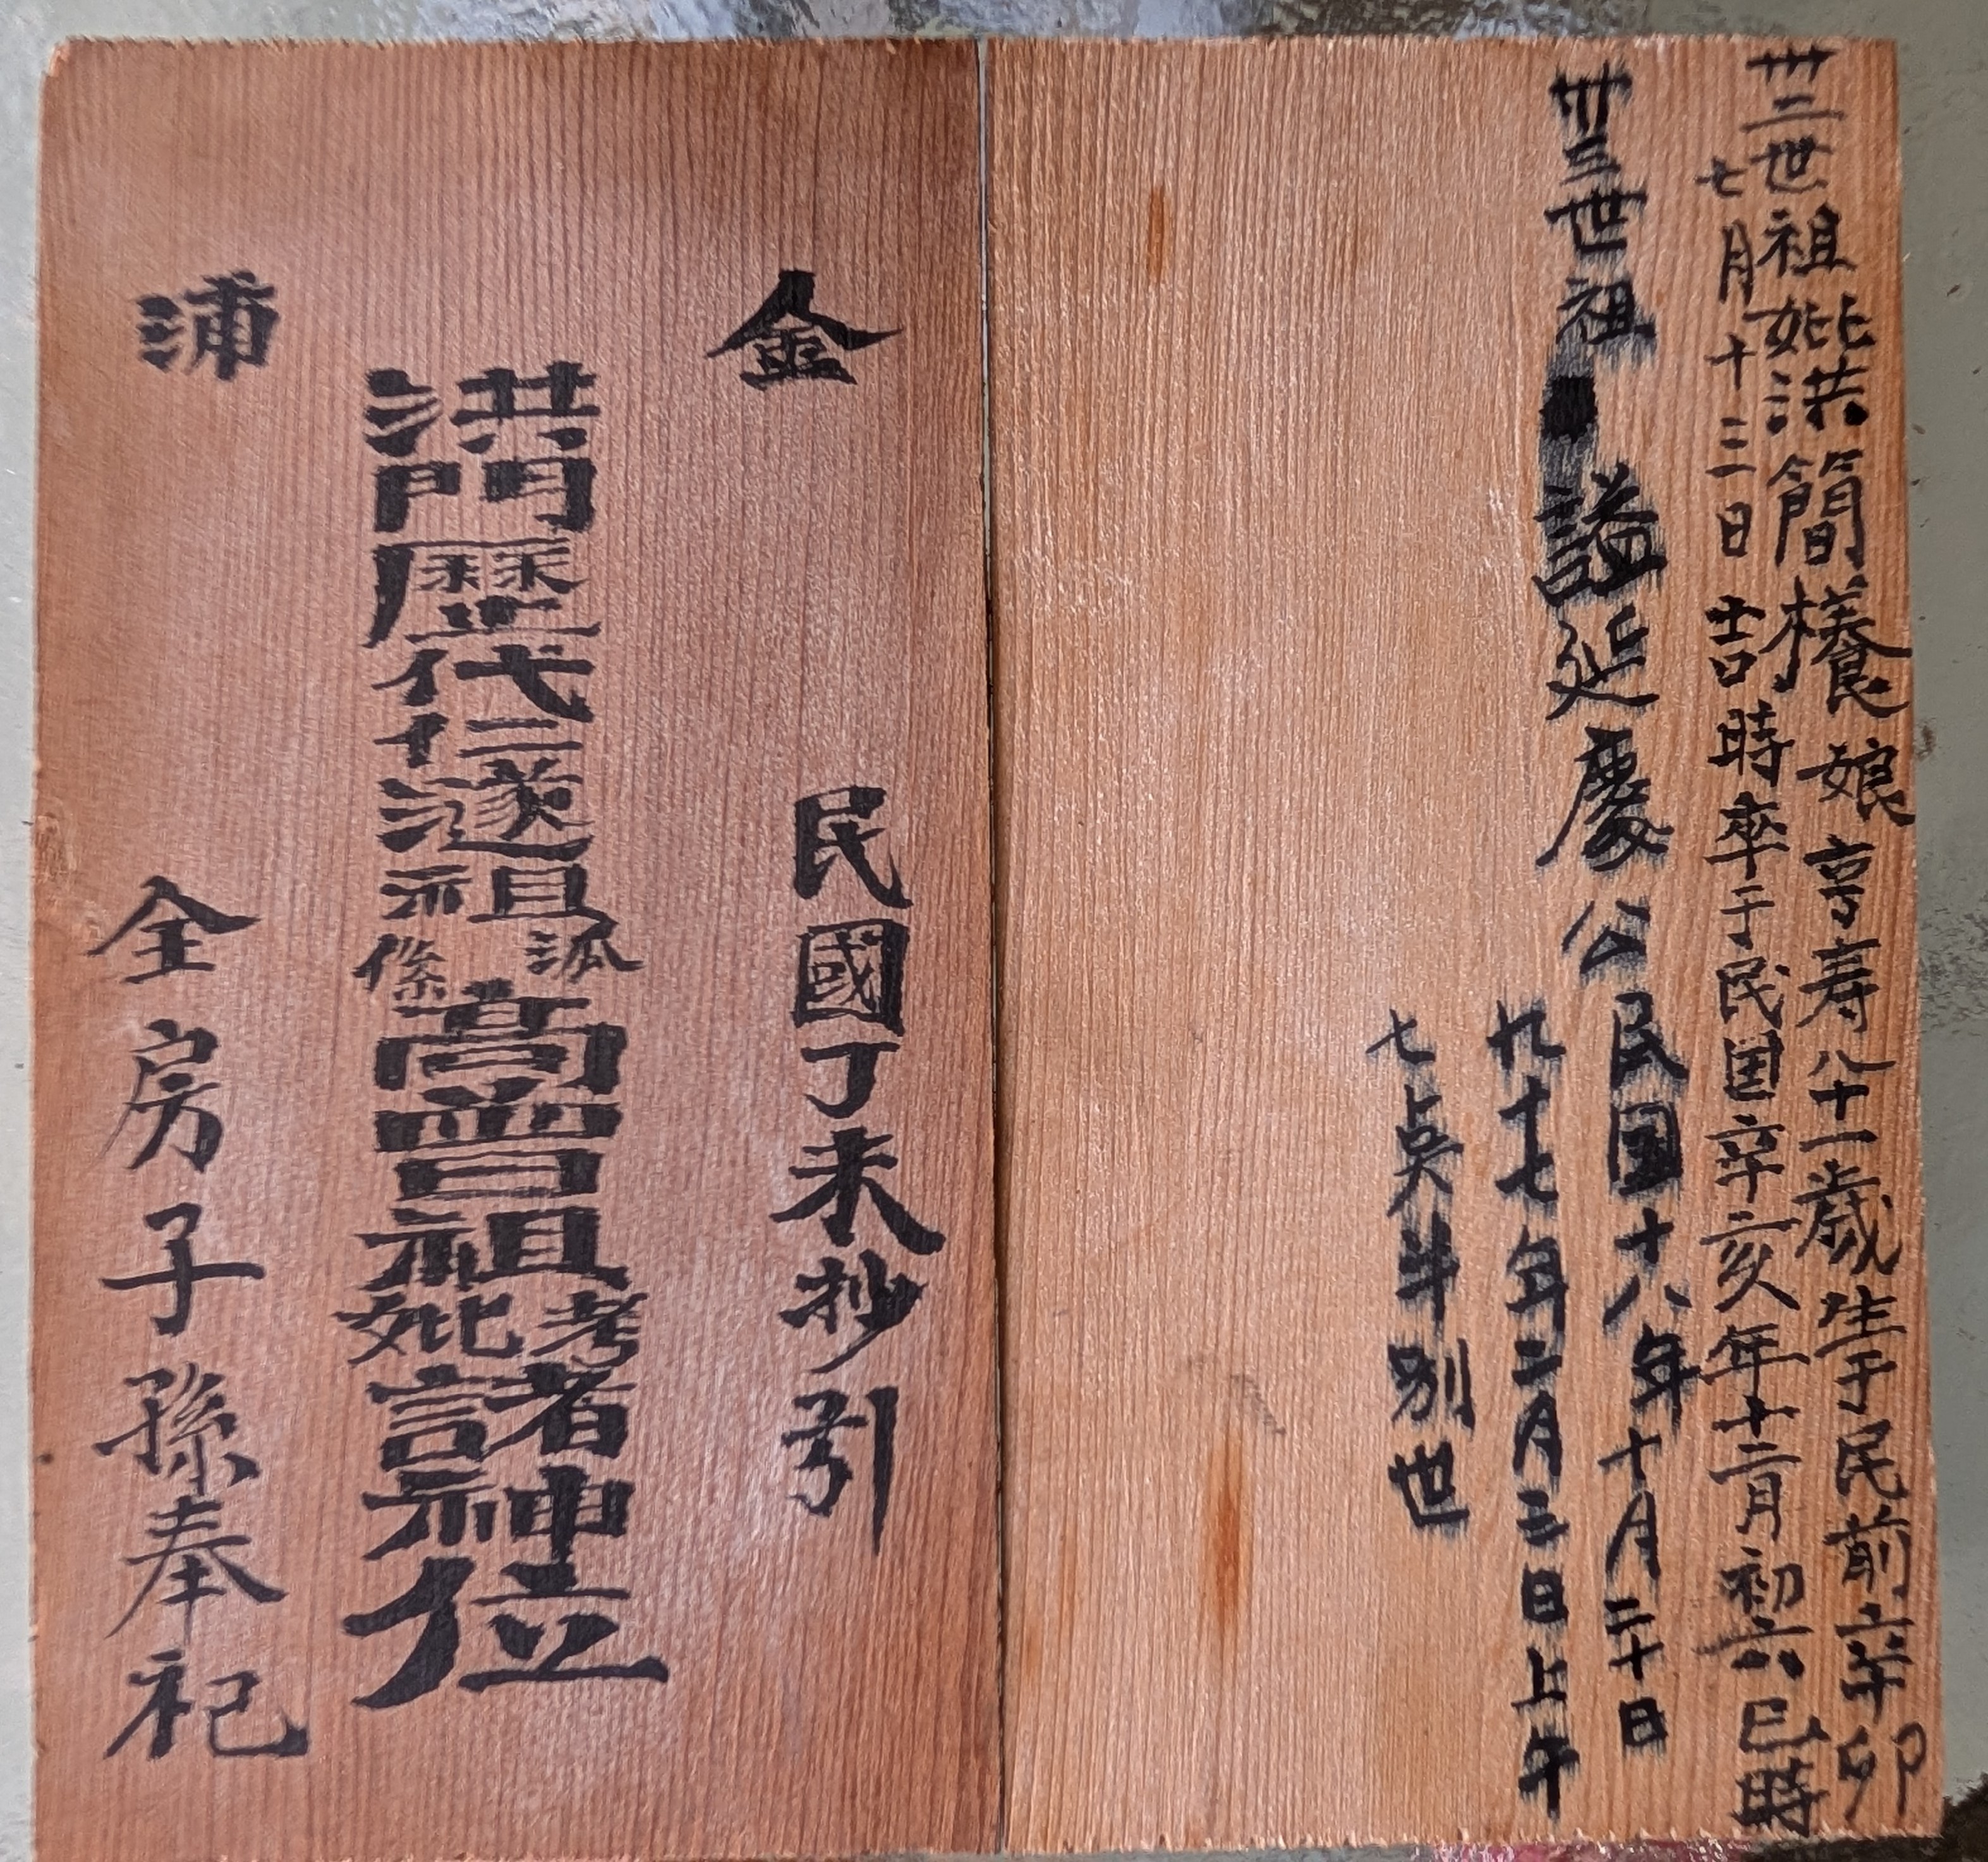 卅二世祖妣洪簡樣娘享寿八十一歲生于民前辛卯
七月十三日吉時卒于民国辛亥年十二月初六巳時
卅三世祖 諡延慶公
民国十八年十月二十日
九十七年二月三日上午
七點半別世
金
民國丁未抄引
洪門歷代仁遂祖派係高曾祖考妣諸神位
浦
全房子孫奉祀